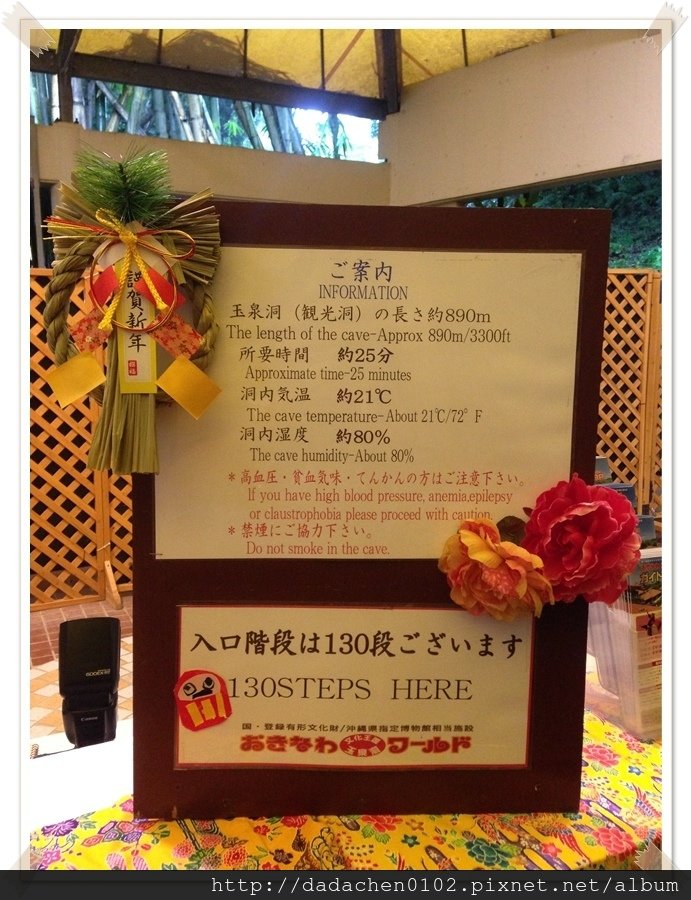 謹賀新年
ご案内
INFORMATION
玉泉洞（観光洞）の長さ約890m
The length of the cave-Approx 890m/3300ft
所要時間 約25分
Approximate time-25 minutes
洞内気温 約21℃
The cave temperature-About 21℃/72°F
洞内湿度 約80%
The cave humidity-About 80%
＊高血圧・貧血気味・てんかんの方はご注意下さい。
If you have high blood pressure, anemia,epilepsy
or claustrophobia please proceed with caution.
＊禁煙にご協力下さい。
Do not smoke in the cave.
入口階段は130段ございます
130STEPS HERE
国・登録有形文化財/沖縄県指定博物館相当施設
おきなわ 文化王国 玉泉洞 ワールド
Canon
http://dadachen0102.pixnet.net/album